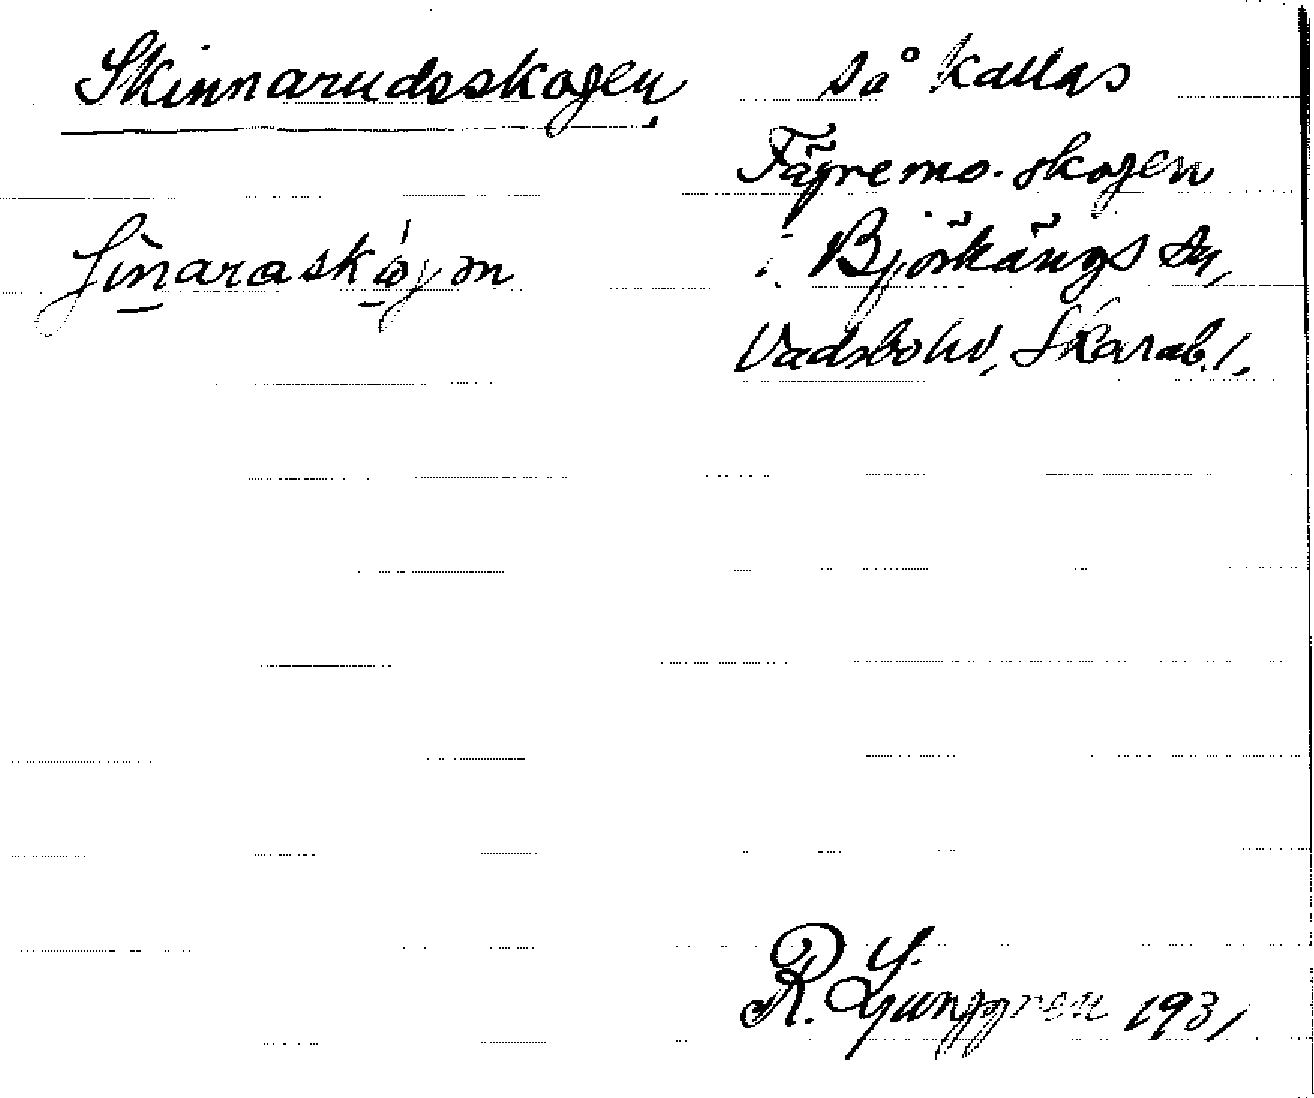 Skinnarudsskogen
ʃinaraskojm
så kallas
Fägremo. skogen
i Björkängs sn,
Vadsbo hd, Skarab. l.
R. Ljunggren 1931